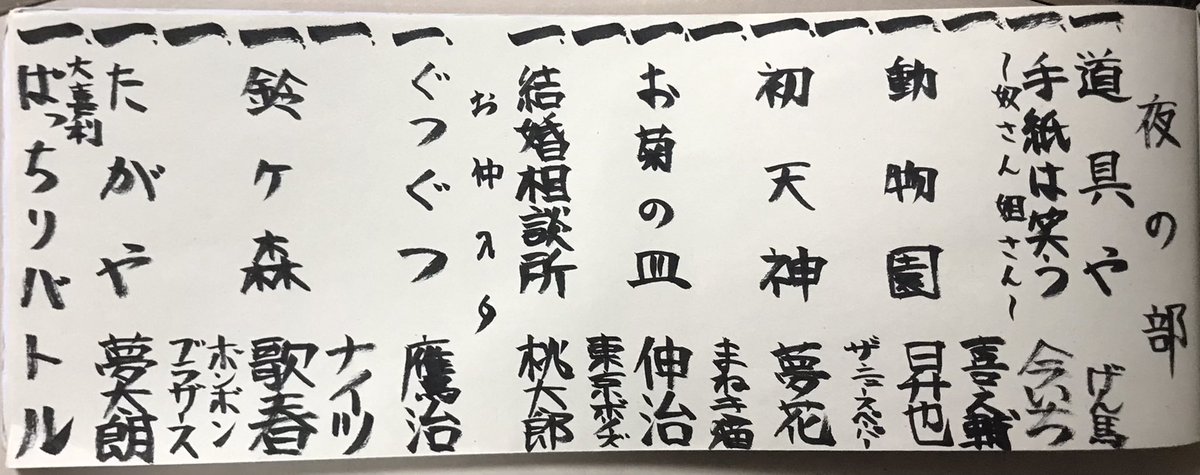 夜の部
一、道具や げん馬
一、手紙は笑う 今いち
〜奴さん姐さん〜
一、喜之輔
一、動物園 昇也
一、ザ・ニュースペーパー
一、初天神 夢花
一、まねき猫
一、お菊の皿 伸治
一、東京ボーイズ
一、結婚相談所 桃太郎
お仲入り
一、ぐつぐつ 鷹治
一、ナイツ
一、鈴ヶ森 歌春
一、ボンボン
ブラザース
一、たがや 夢太朗
大喜利
一、ばっちりバトル